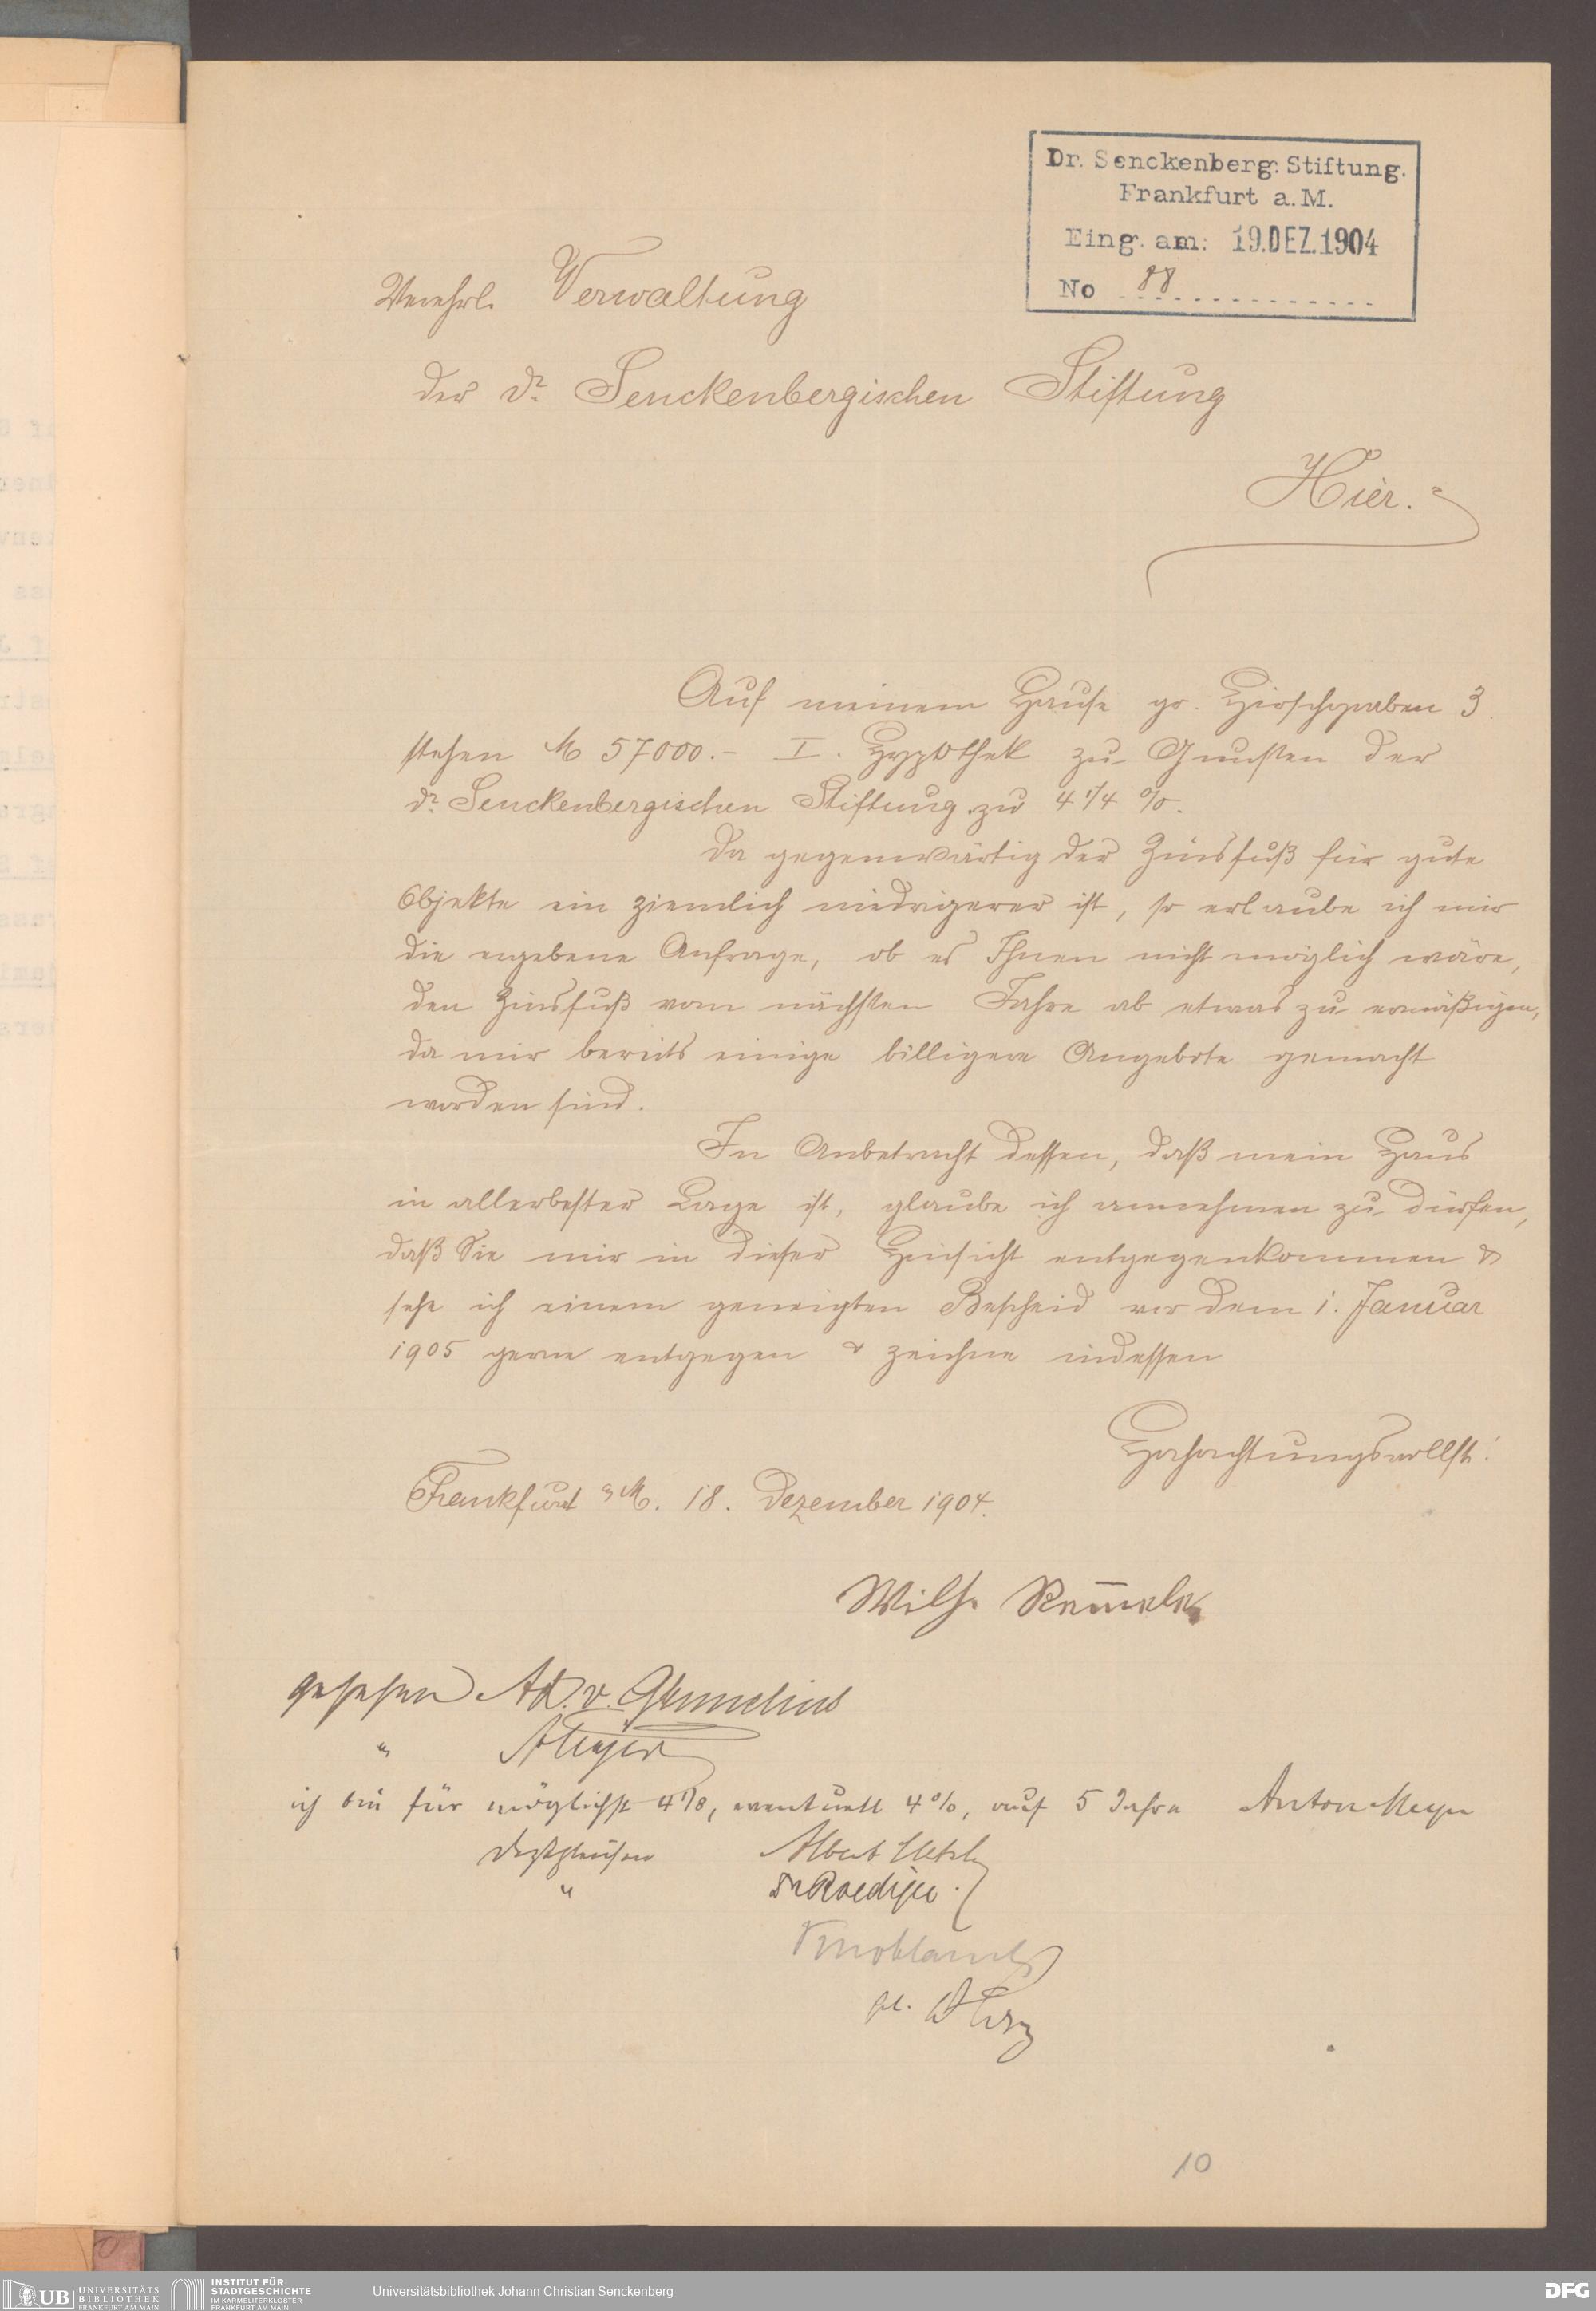 Dr. Senckenberg. Stiftung.
Frankfurt a. M.
Eing. am: 19. DEZ. 1904
No 88
Verehrl. Verwaltung
der Dr. Senckenbergischen Stiftung
Hier.
Auf meinem Hause gr. Hirschgraben 3
stehen M 57000.- I. Hypothek zu Gunsten der
Dr. Senckenbergischen Stiftung zu 4 1/4 %.
Da gegenwärtig der Zinsfuß für gute
Objekte ein ziemlich niedrigerer ist, so erlaube ich mir
die ergebene Anfrage, ob es Ihnen nicht möglich wäre,
den Zinsfuß vom nächsten Jahre ab etwas zu ermäßigen,
da mir bereits einige billigere Angebote gemacht
worden sind.
In Anbetracht dessen, daß mein Haus
in allerbester Lage ist, glaube ich annehmen zu dürfen,
daß Sie mir in dieser Hinsicht entgegenkommen &
sehe ich einem geneigten Bescheid vor dem 1. Januar
1905 gerne entgegen & zeichne indessen
Hochachtungsvollst!
Frankfurt a/M. 18. Dezember 1904.
Wilh.
gesehen Ad. v. Grunelius
" A Meyer
ich bin für möglichst 4 1/8, eventuell 4 %, auf 5 Jahre Anton Meyer
Desgleichen Albert Metzler
" Dr Roediger.
Knoblauch
10
UB UNIVERSITÄTS
BIBLIOTHEK
FRANKFURT AM MAIN
INSTITUT FÜR
STADTGESCHICHTE
IM KARMELITERKLOSTER
FRANKFURT AM MAIN
Universitätsbibliothek Johann Christian Senckenberg
DFG